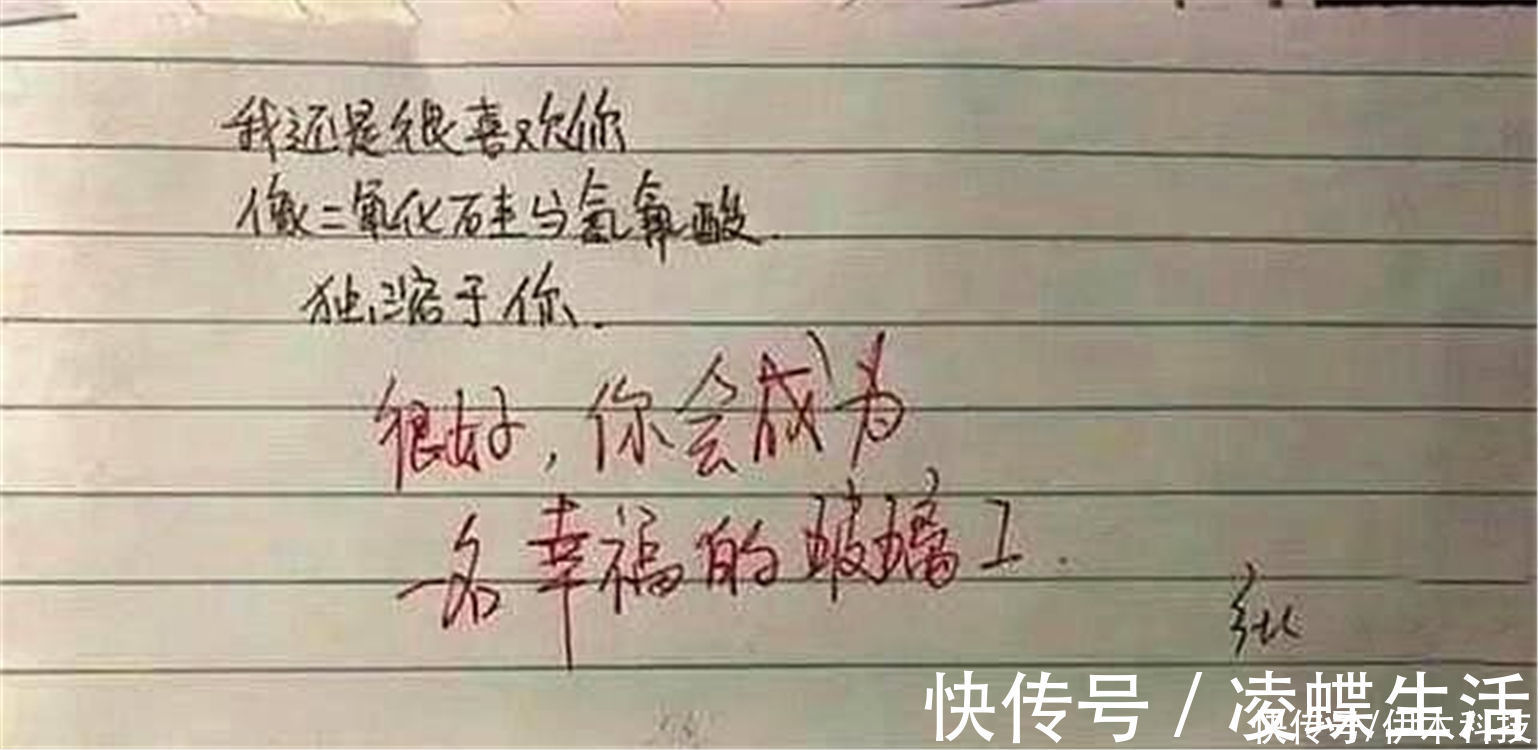 我还是很喜欢你
像二氧化硅与氢氟酸.
独溶于你.
很好,你会成为
一名幸福的玻璃工.
快传号/凌蝶生活
快传号/伊本科技